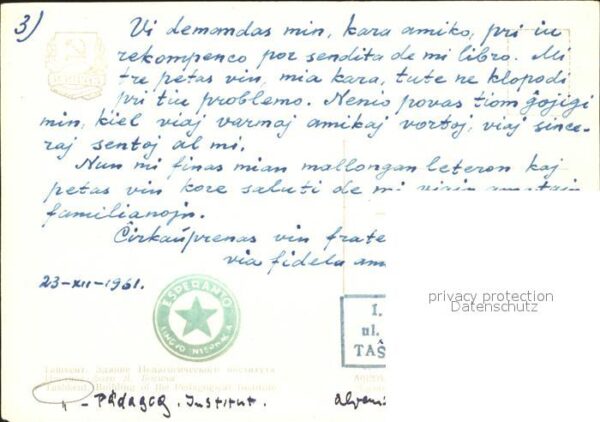 3)
Vi demandas min, kara amiko, pri iu
rekompenco por sendita de mi libro. Mi
tre petas vin, mia kara, tute ne klopodi
pri tiu problemo. Nenio povas tiom ĝojigi
min, kiel viaj varmaj amikaj vortoj, viaj since-
raj sentoj al mi.
Nun mi finas mian mallongan leteron kaj
petas vin kore saluti de mi viajn
familianojn.
Ĉirkaŭprenas vin frate
via fidela
23-XII-1961.
ESPERANTO
LINGVO INTERNACIA
I.
ul.
TAŠ
privacy protection
Datenschutz
Ташкент. Здание Педагогического института
Tashkent. Building of the Pedagogical Institute
" - Pädagog. Institut.